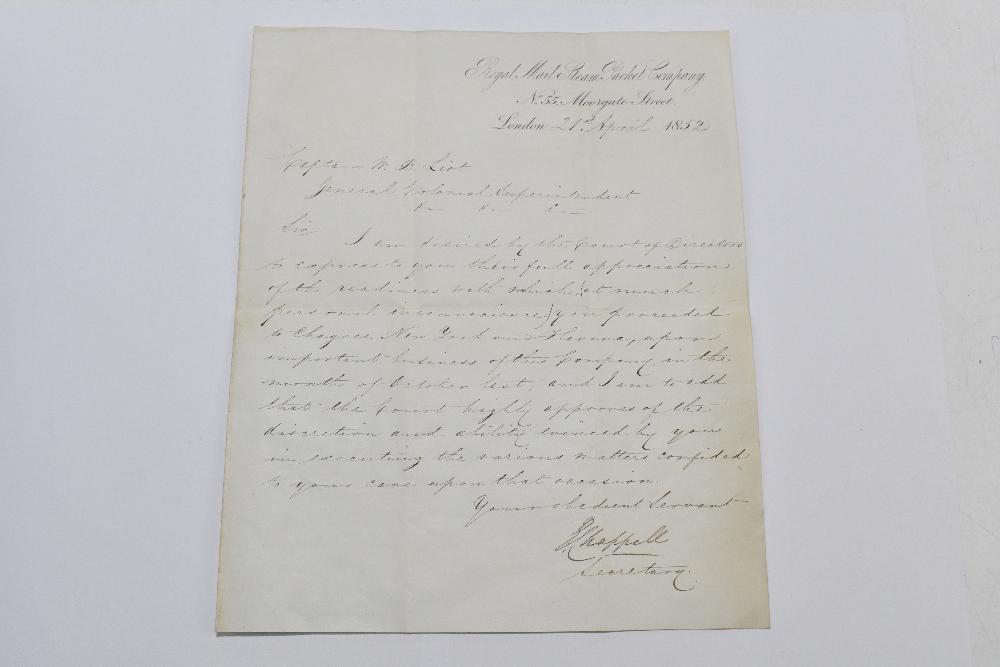 Royal Mail Steam Packet Company,
No. 55, Moorgate Street,
London 21st April 1852
Captain W. B. Liot
General Colonial Superintendent
&c &c &c
Sir
I am desired by the Court of Directors
to express to you their full appreciation
of the readiness with which (at much
personal inconvenience) you proceeded
to Chagres, New York and Havana, upon
important business of this Company in the
month of October last, and I am to add
that the Court highly approves of the
discretion and ability evinced by you
in executing the various matters confided
to your care upon that occasion.
Your obedient Servant
E Chappell
Secretary.